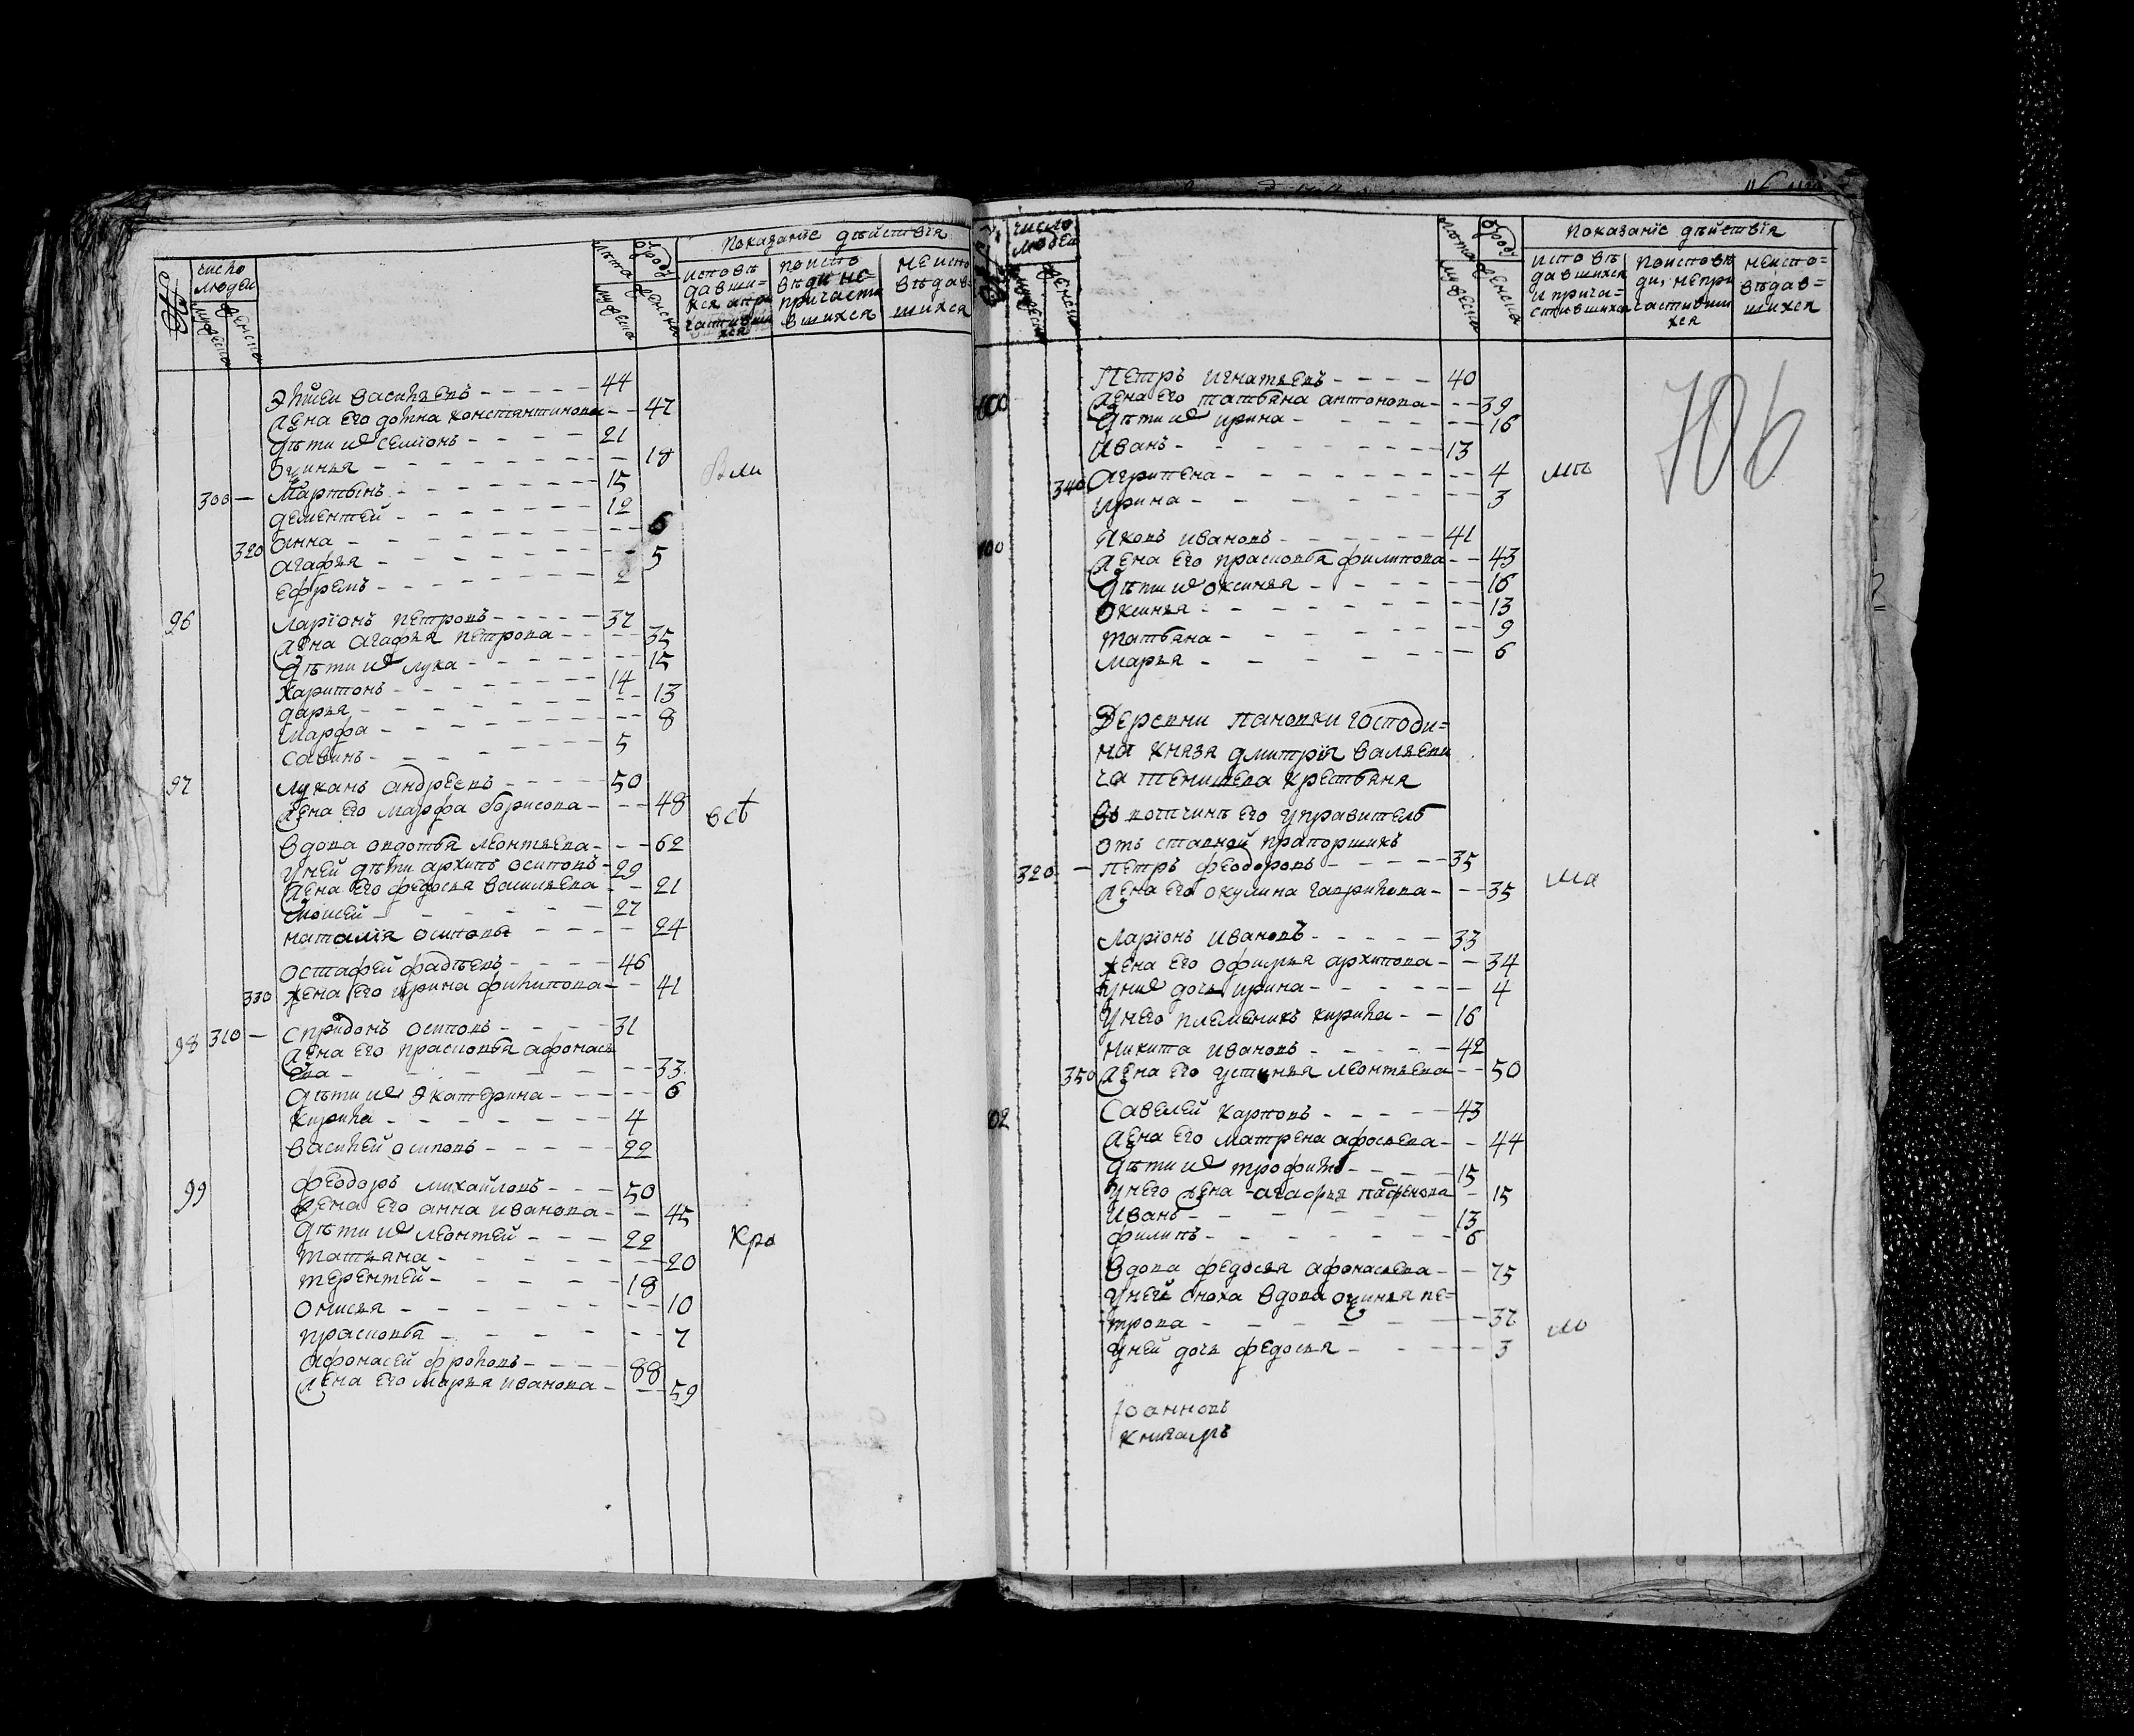 число людей
мужеска женска
лѣта ѿ роду
мужеска женска
Показанїе дѣйствїя
исповѣдавши-
хся
поисповѣди не
причастившихся
неисповѣдав=
шихся
Эзпсей Васильевъ - 44
Жена его домна константинова - 47
дѣти ихъ семїонъ - 21
- 18
300 - Мартынъ - 15
дементей - 12
320 Анна - 6
агафья - 5
ефремъ - 2
96 Ларїонъ петровъ - 37
жена агафья петрова - 35
дѣти ихъ лука - 15
харитонъ - 14
дарья - 13
Марфа - 8
савинъ - 5
97 луканъ андреевъ - 50
жена его марфа борисова - 48
всѣ
вдова овдотья леонтьева - 62
у ней дѣти архипъ осиповъ - 29
жена его федосья васильева - 21
мосей - 27
наталїя осипова - 24
остафей фадѣевъ - 46
330 жена его ирина филипова - 41
98 310 - спридонъ осиповъ - 31
жена его прасковья афонась
ева - 33
дѣти ихъ екатерина - 6
кирила - 4
василей осиповъ - 22
99 феодоръ михайловъ - 50
жена его анна иванова - 45
дѣти ихъ леонтей - 22
татьяна - 20
терентей - 18
онисья - 10
прасковья - 7
афонасей фроловъ - 88
жена его марья иванова - 59
Кра
число людей
мужеска женска
лѣта ѿ роду
мужеска женска
Показанїе дѣйствїя
исповѣ
давшихся
и прича=
стившихся
поисповѣ
ди, непри
частивши
хся
неиспо=
вѣдав=
шихся
706
Петръ игнатьевъ - 40
жена его татьяна антонова - 39
дѣти ихъ ирина - 16
иванъ - 13
340 агрипена - 4
ирина - 3
100 яковъ ивановъ - 41
жена его прасковья филипова - 43
дѣти ихъ оксинья - 16
оксинья - 13
татьяна - 9
марья - 6
Деревни пановки господи=
на князя дмитрїя васильеви
ча тенишева крестьяня
въ вотчинѣ его управитель
отъ ставной прапорщикъ
320 - петръ феодоровъ - 35
жена его окулина гаврилова - 35
Ларїонъ ивановъ - 33
жена его офимья архипова - 34
у нихъ дочь ирина - 4
у него племеникъ кирила - 16
никита ивановъ - 42
350 жена его устинья леонтьева - 50
02 савелей карповъ - 43
жена его матрена афосьева - 44
дѣти ихъ трофимъ - 15
у него жена агафья пафенова - 15
иванъ - 13
филипъ - 6
вдова федосья афонасьева - 75
у ней сноха вдова оуинья пе=
трова - 37
у ней дочь федосья - 3
Іоанновъ